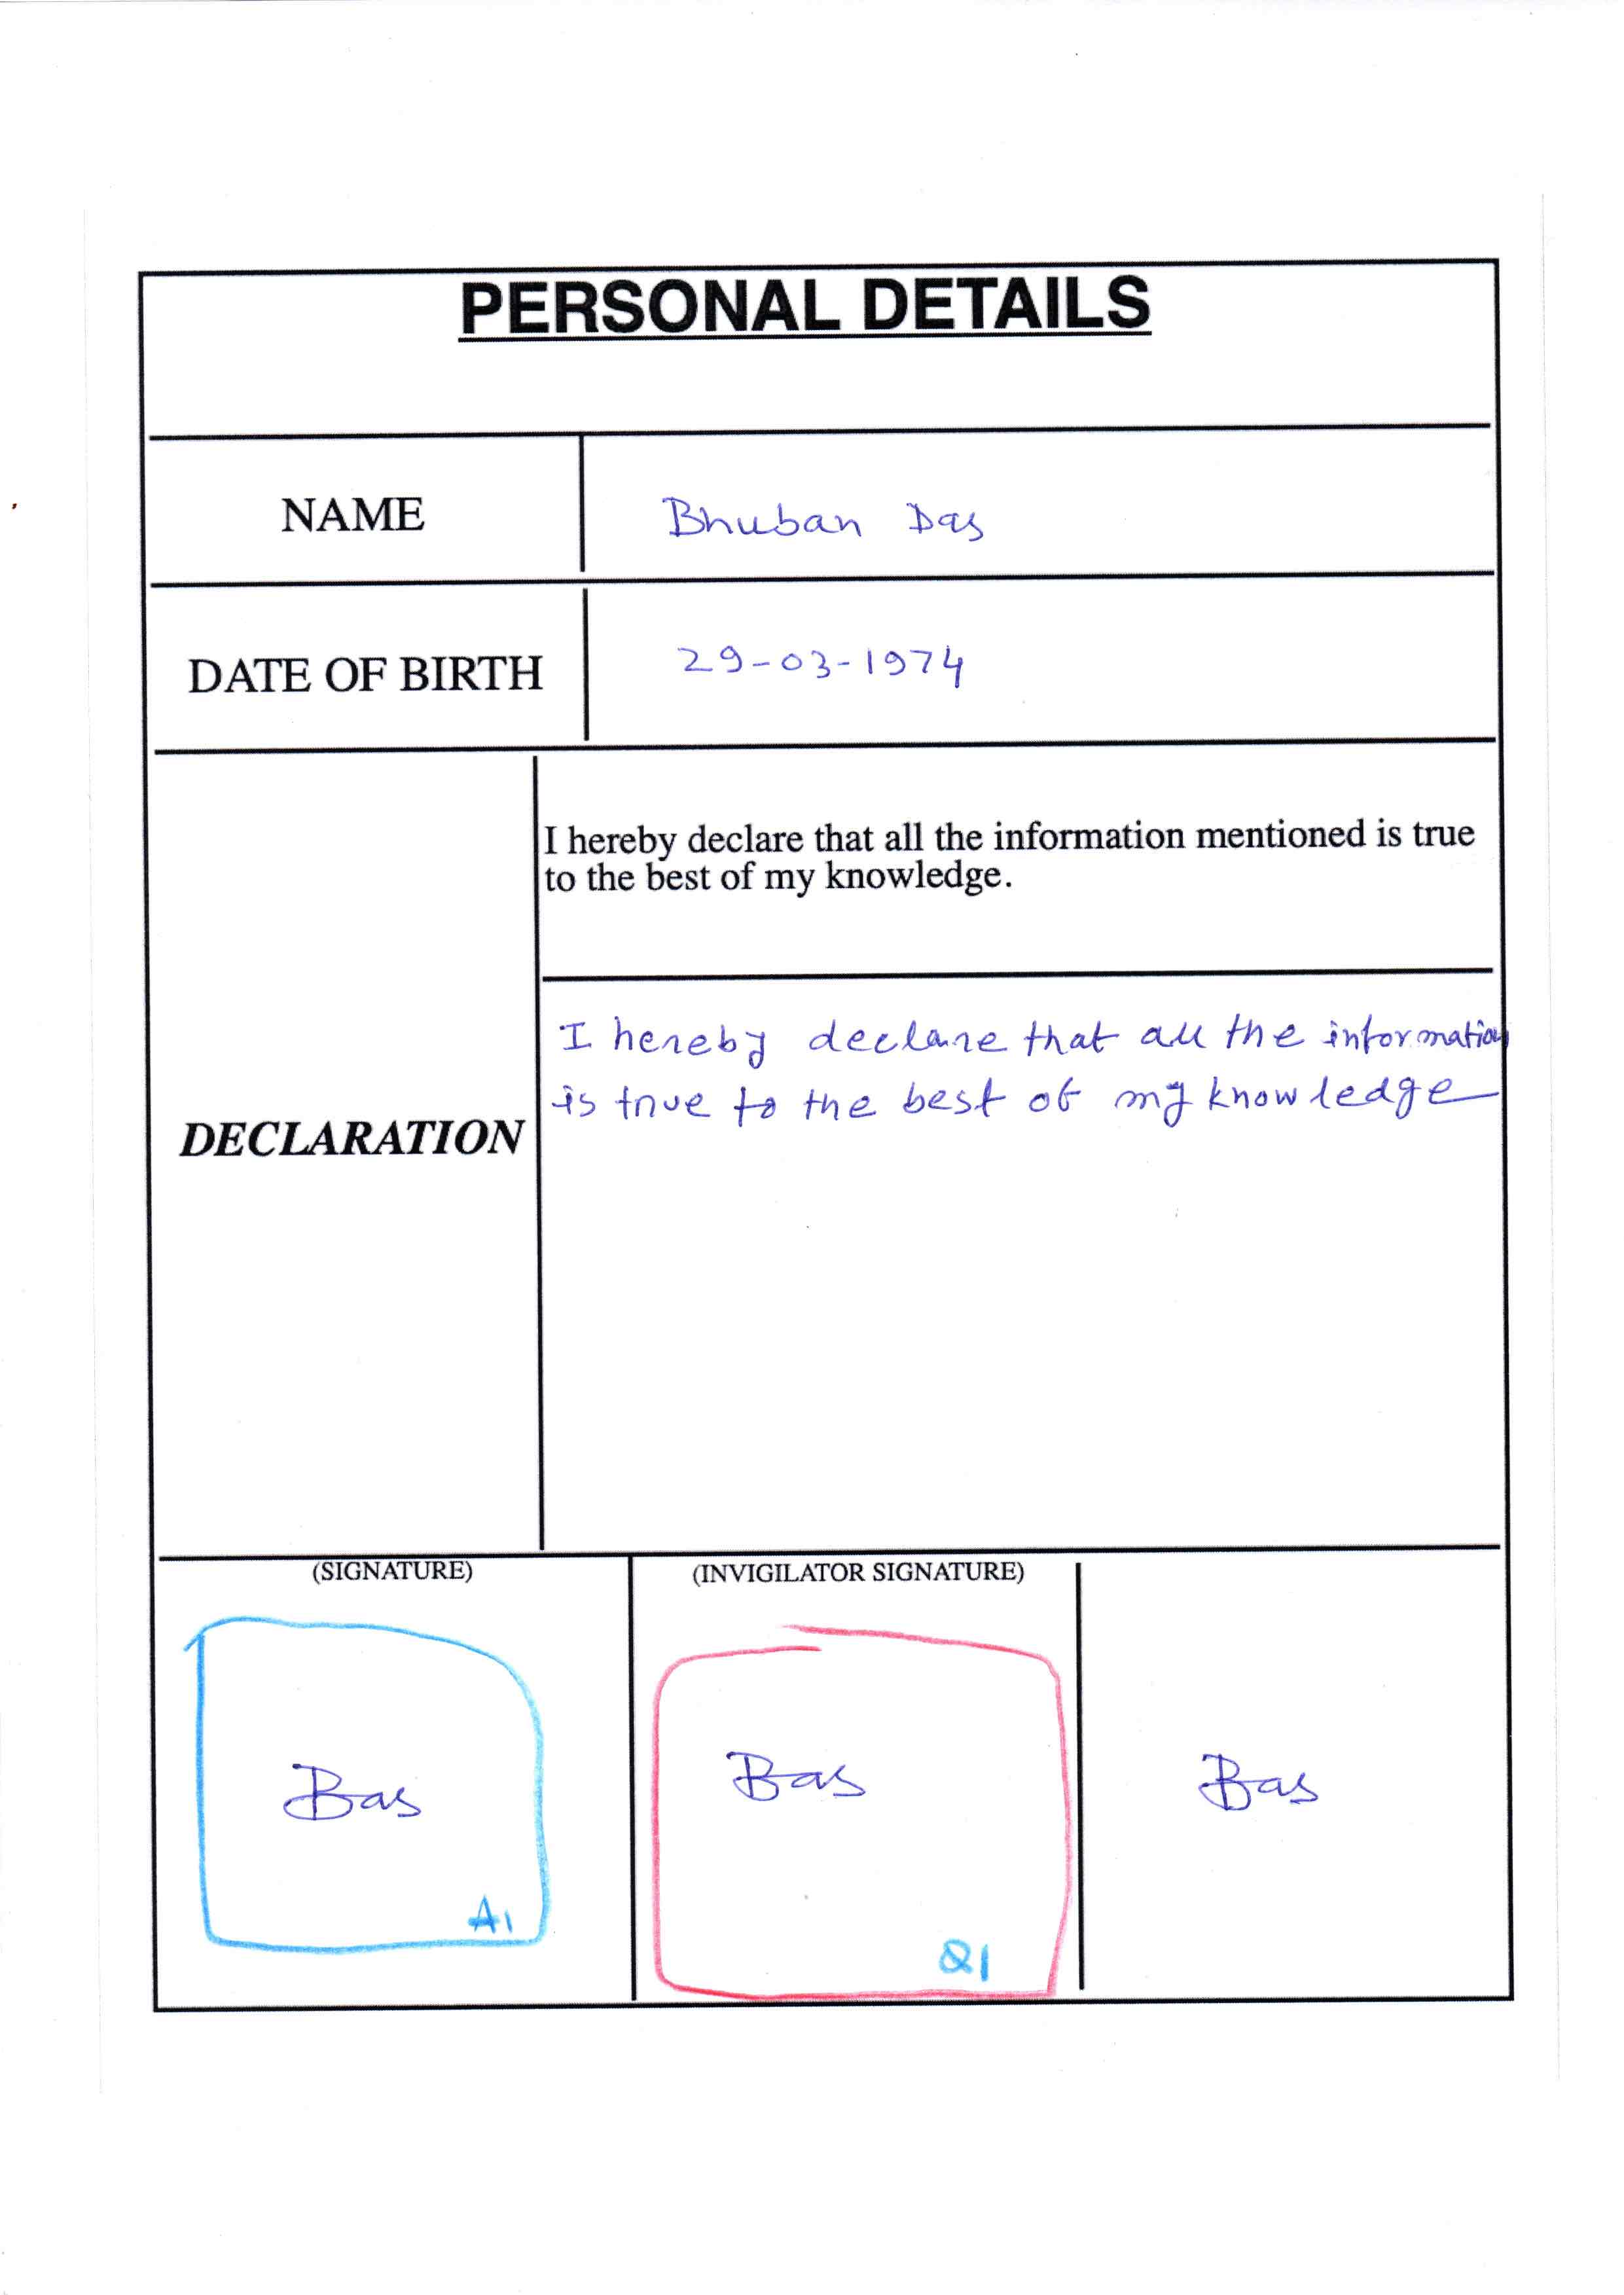 PERSONAL DETAILS
NAME
Bhuban Das
DATE OF BIRTH
29-03-1974
I hereby declare that all the information mentioned is true
to the best of my knowledge.
DECLARATION
I hereby declare that all the information
is true to the best of my knowledge
(SIGNATURE)
(INVIGILATOR SIGNATURE)
Bas
Bas
Bas
A1
Q1